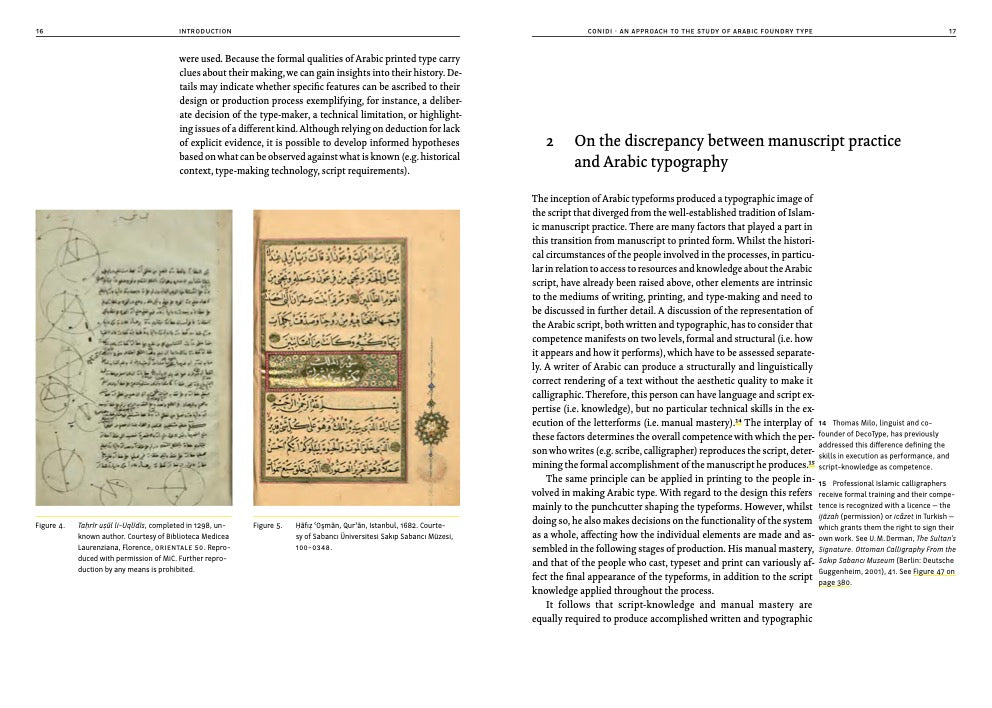 16
INTRODUCTION
were used. Because the formal qualities of Arabic printed type carry
clues about their making, we can gain insights into their history. De-
tails may indicate whether specific features can be ascribed to their
design or production process exemplifying, for instance, a deliber-
ate decision of the type-maker, a technical limitation, or highlight-
ing issues of a different kind. Although relying on deduction for lack
of explicit evidence, it is possible to develop informed hypotheses
based on what can be observed against what is known (e.g. historical
context, type-making technology, script requirements).
القوم الظالمين ومريم ابنت عمران التي
فرجها فنفخنا فيه من روحنا وصدقت بكلمات
ربها وكتبه وكانت من القانتين
بسم الله الرحمن الرحيم
Figure 4. Taḥrīr uṣūl li-Uqlīdis, completed in 1298, un-
known author. Courtesy of Biblioteca Medicea
Laurenziana, Florence, ORIENTALE 50. Repro-
duced with permission of MiC. Further repro-
duction by any means is prohibited.
Figure 5. Ḥāfiẓ ʿOṣmān, Qurʾān, Istanbul, 1682. Courte-
sy of Sabancı Üniversitesi Sakıp Sabancı Müzesi,
100-0348.
CONIDI · AN APPROACH TO THE STUDY OF ARABIC FOUNDRY TYPE
17
2 On the discrepancy between manuscript practice
and Arabic typography
The inception of Arabic typeforms produced a typographic image of
the script that diverged from the well-established tradition of Islam-
ic manuscript practice. There are many factors that played a part in
this transition from manuscript to printed form. Whilst the histori-
cal circumstances of the people involved in the processes, in particu-
lar in relation to access to resources and knowledge about the Arabic
script, have already been raised above, other elements are intrinsic
to the mediums of writing, printing, and type-making and need to
be discussed in further detail. A discussion of the representation of
the Arabic script, both written and typographic, has to consider that
competence manifests on two levels, formal and structural (i.e. how
it appears and how it performs), which have to be assessed separate-
ly. A writer of Arabic can produce a structurally and linguistically
correct rendering of a text without the aesthetic quality to make it
calligraphic. Therefore, this person can have language and script ex-
pertise (i.e. knowledge), but no particular technical skills in the ex-
ecution of the letterforms (i.e. manual mastery).14 The interplay of
these factors determines the overall competence with which the per-
son who writes (e.g. scribe, calligrapher) reproduces the script, deter-
mining the formal accomplishment of the manuscript he produces.15
The same principle can be applied in printing to the people in-
volved in making Arabic type. With regard to the design this refers
mainly to the punchcutter shaping the typeforms. However, whilst
doing so, he also makes decisions on the functionality of the system
as a whole, affecting how the individual elements are made and as-
sembled in the following stages of production. His manual mastery,
and that of the people who cast, typeset and print can variously af-
fect the final appearance of the typeforms, in addition to the script
knowledge applied throughout the process.
It follows that script-knowledge and manual mastery are
equally required to produce accomplished written and typographic
14 Thomas Milo, linguist and co-
founder of DecoType, has previously
addressed this difference defining the
skills in execution as performance, and
script-knowledge as competence.
15 Professional Islamic calligraphers
receive formal training and their compe-
tence is recognized with a licence – the
ijāzah (permission) or icâzet in Turkish –
which grants them the right to sign their
own work. See U. M. Derman, The Sultan's
Signature. Ottoman Calligraphy From the
Sakıp Sabancı Museum (Berlin: Deutsche
Guggenheim, 2001), 41. See Figure 47 on
page 380.